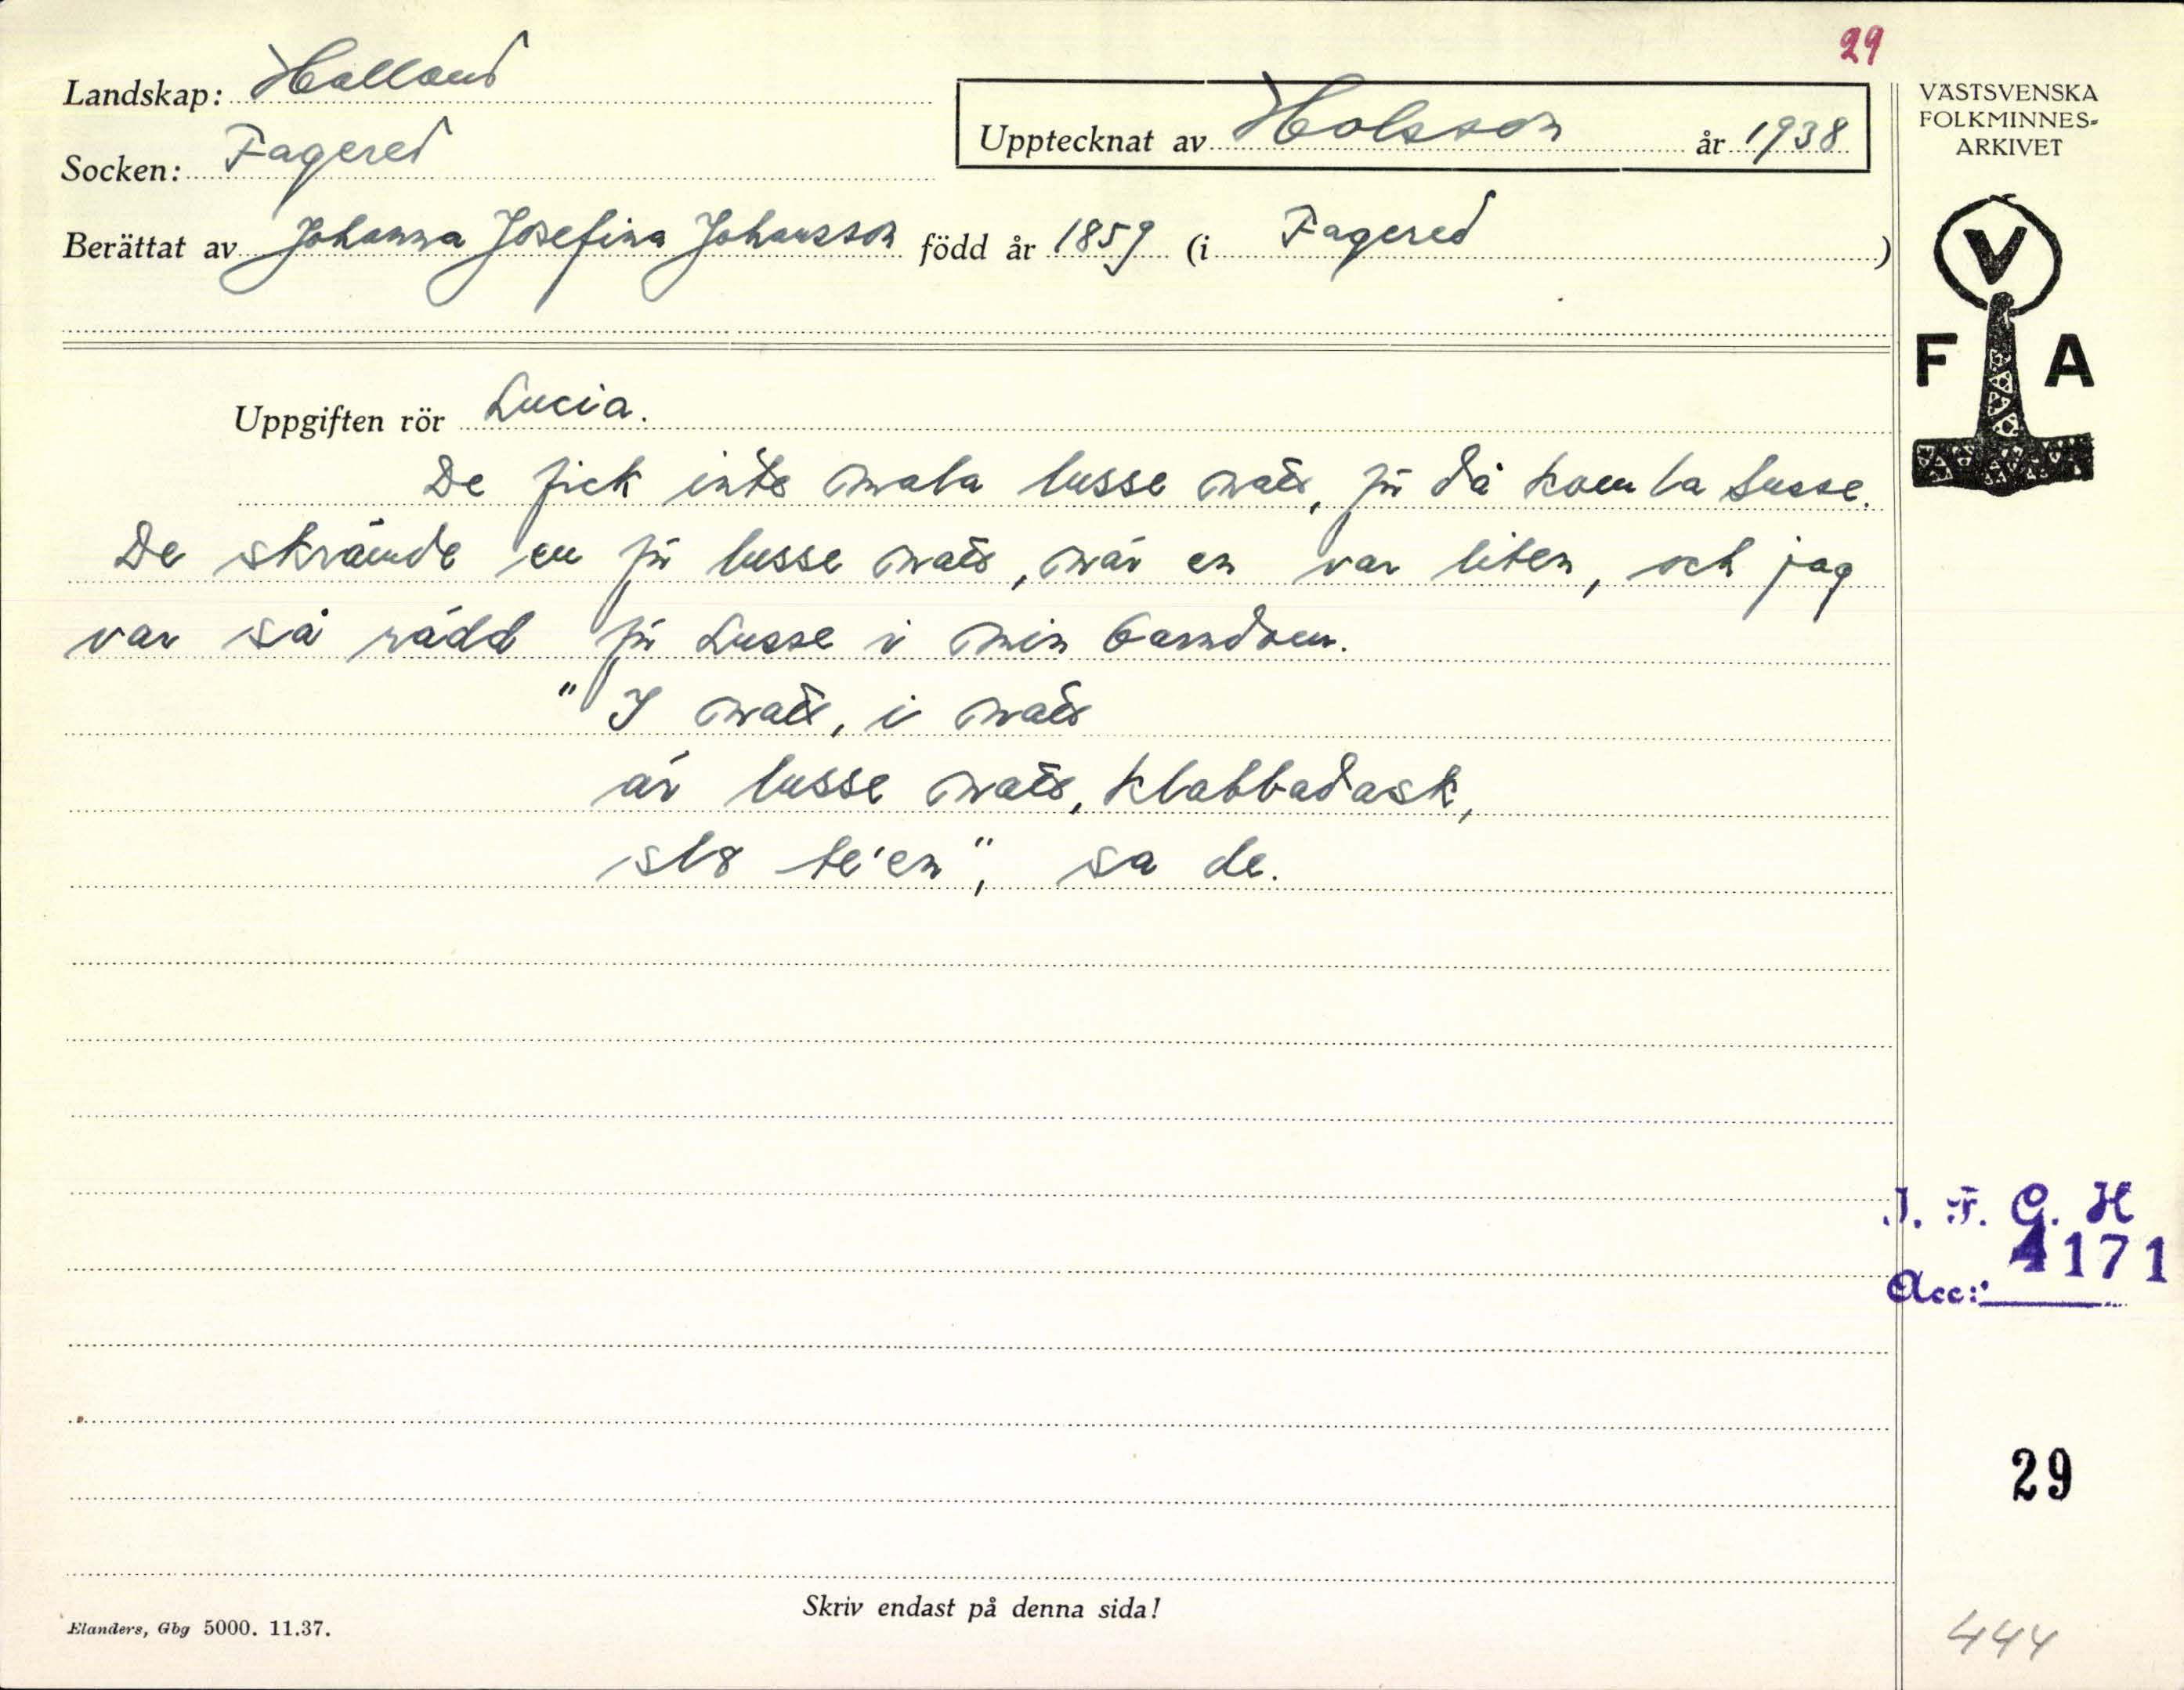 29
Landskap: Halland
Upptecknat av Holsson år 1938
VÄSTSVENSKA
FOLKMINNES-
ARKIVET
Socken: Fagered
Berättat av Johanna Josefina Johansson född år 1859 (i Fagered)
V
F A
Uppgiften rör Lucia.
De fick inte mala lusse natt, för då kom la Lusse.
De skrämde en för lusse natt, när en var liten, och jag
var så rädd för Lusse i min barndom.
"I natt, i natt
är lusse natt, klabbadask,
slo te'en", sa de.
I. F. G. H
4171
Acc:
29
Skriv endast på denna sida!
Elanders, Gbg 5000. 11.37.
444